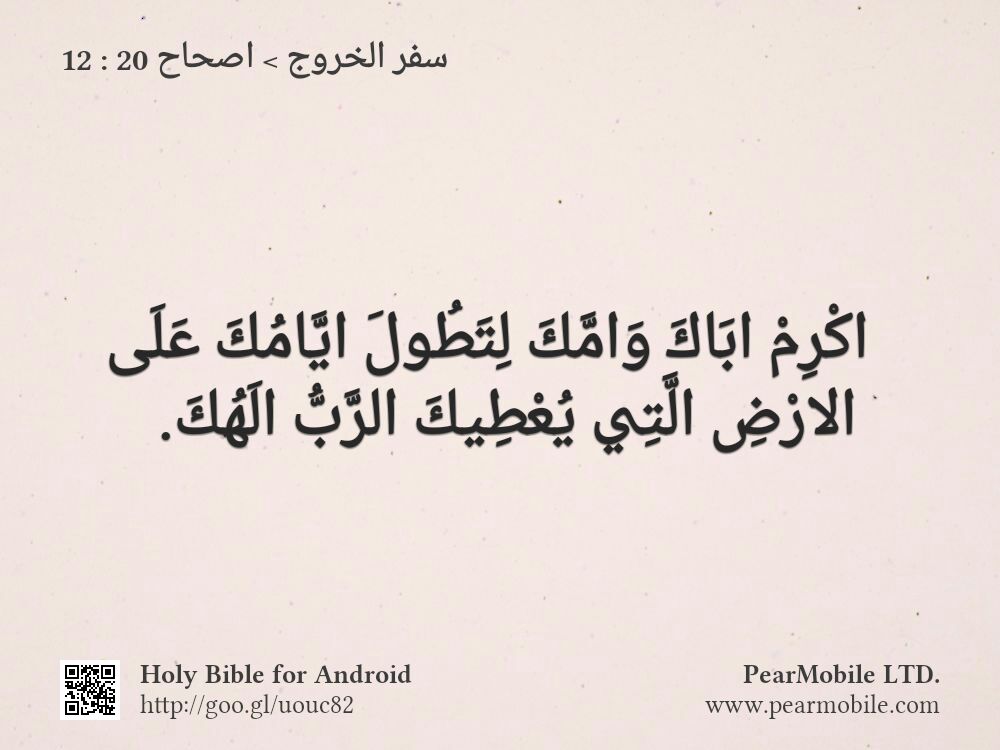 سفر الخروج > اصحاح 20 : 12
اكْرِمْ ابَاكَ وَامَّكَ لِتَطُولَ ايَّامُكَ عَلَى
الارْضِ الَّتِي يُعْطِيكَ الرَّبُّ الَهُكَ.
Holy Bible for Android
http://goo.gl/uouc82
PearMobile LTD.
www.pearmobile.com